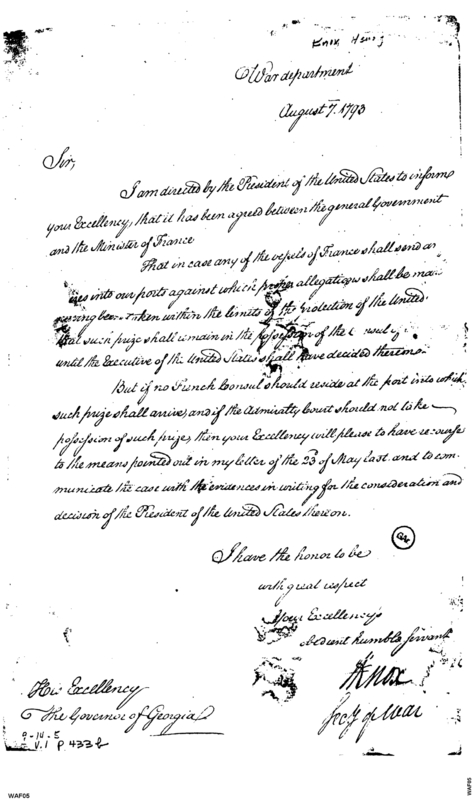 Knox Henry
War department
August 7. 1793
Sir,
I am directed by the President of the United States to inform
your Excellency, that it has been agreed between the general Government
and the Minister of France
That in case any of the vessels of France shall send
into our ports against which allegations shall be
taken within the limits of the protection of the United
that such prize shall remain in the possession of the
until the Executive of the United States shall have decided thereon.
But if no French Consul should reside at the port into which
such prize shall arrive, and if the Admiralty Court should not take
possession of such prize, then your Excellency will please to have recourse
to the means pointed out in my letter of the 23 of May last. and to com-
municate the case with the evidences in writing for the consideration and
decision of the President of the United States thereon.
I have the honor to be
with great respect
Your Excellency's
obedient humble servant
HKnox
Secy of War
His Excellency
The Governor of Georgia
9-14-5
V.1 P 433b
WAF05
WAF05